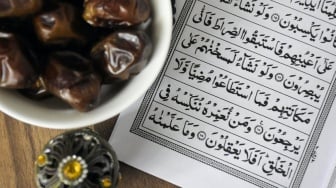 يَكْسِبُونَ ۝ وَلَوْ نَشَآءُ
عَلَىٰٓ أَعْيُنِهِمْ فَاسْتَبَقُوا الصِّرَاطَ فَأَنَّىٰ
يُبْصِرُونَ ۝ وَلَوْ نَشَآءُ لَمَسَخْنَٰهُمْ عَلَىٰ
مَكَانَتِهِمْ فَمَا اسْتَطَاعُوا مُضِيًّا وَلَا
يَرْجِعُونَ ۝ وَمَنْ نُعَمِّرْهُ نُنَكِّسْهُ فِي
الْخَلْقِ أَفَلَا يَعْقِلُونَ ۝ وَمَا عَلَّمْنَٰهُ